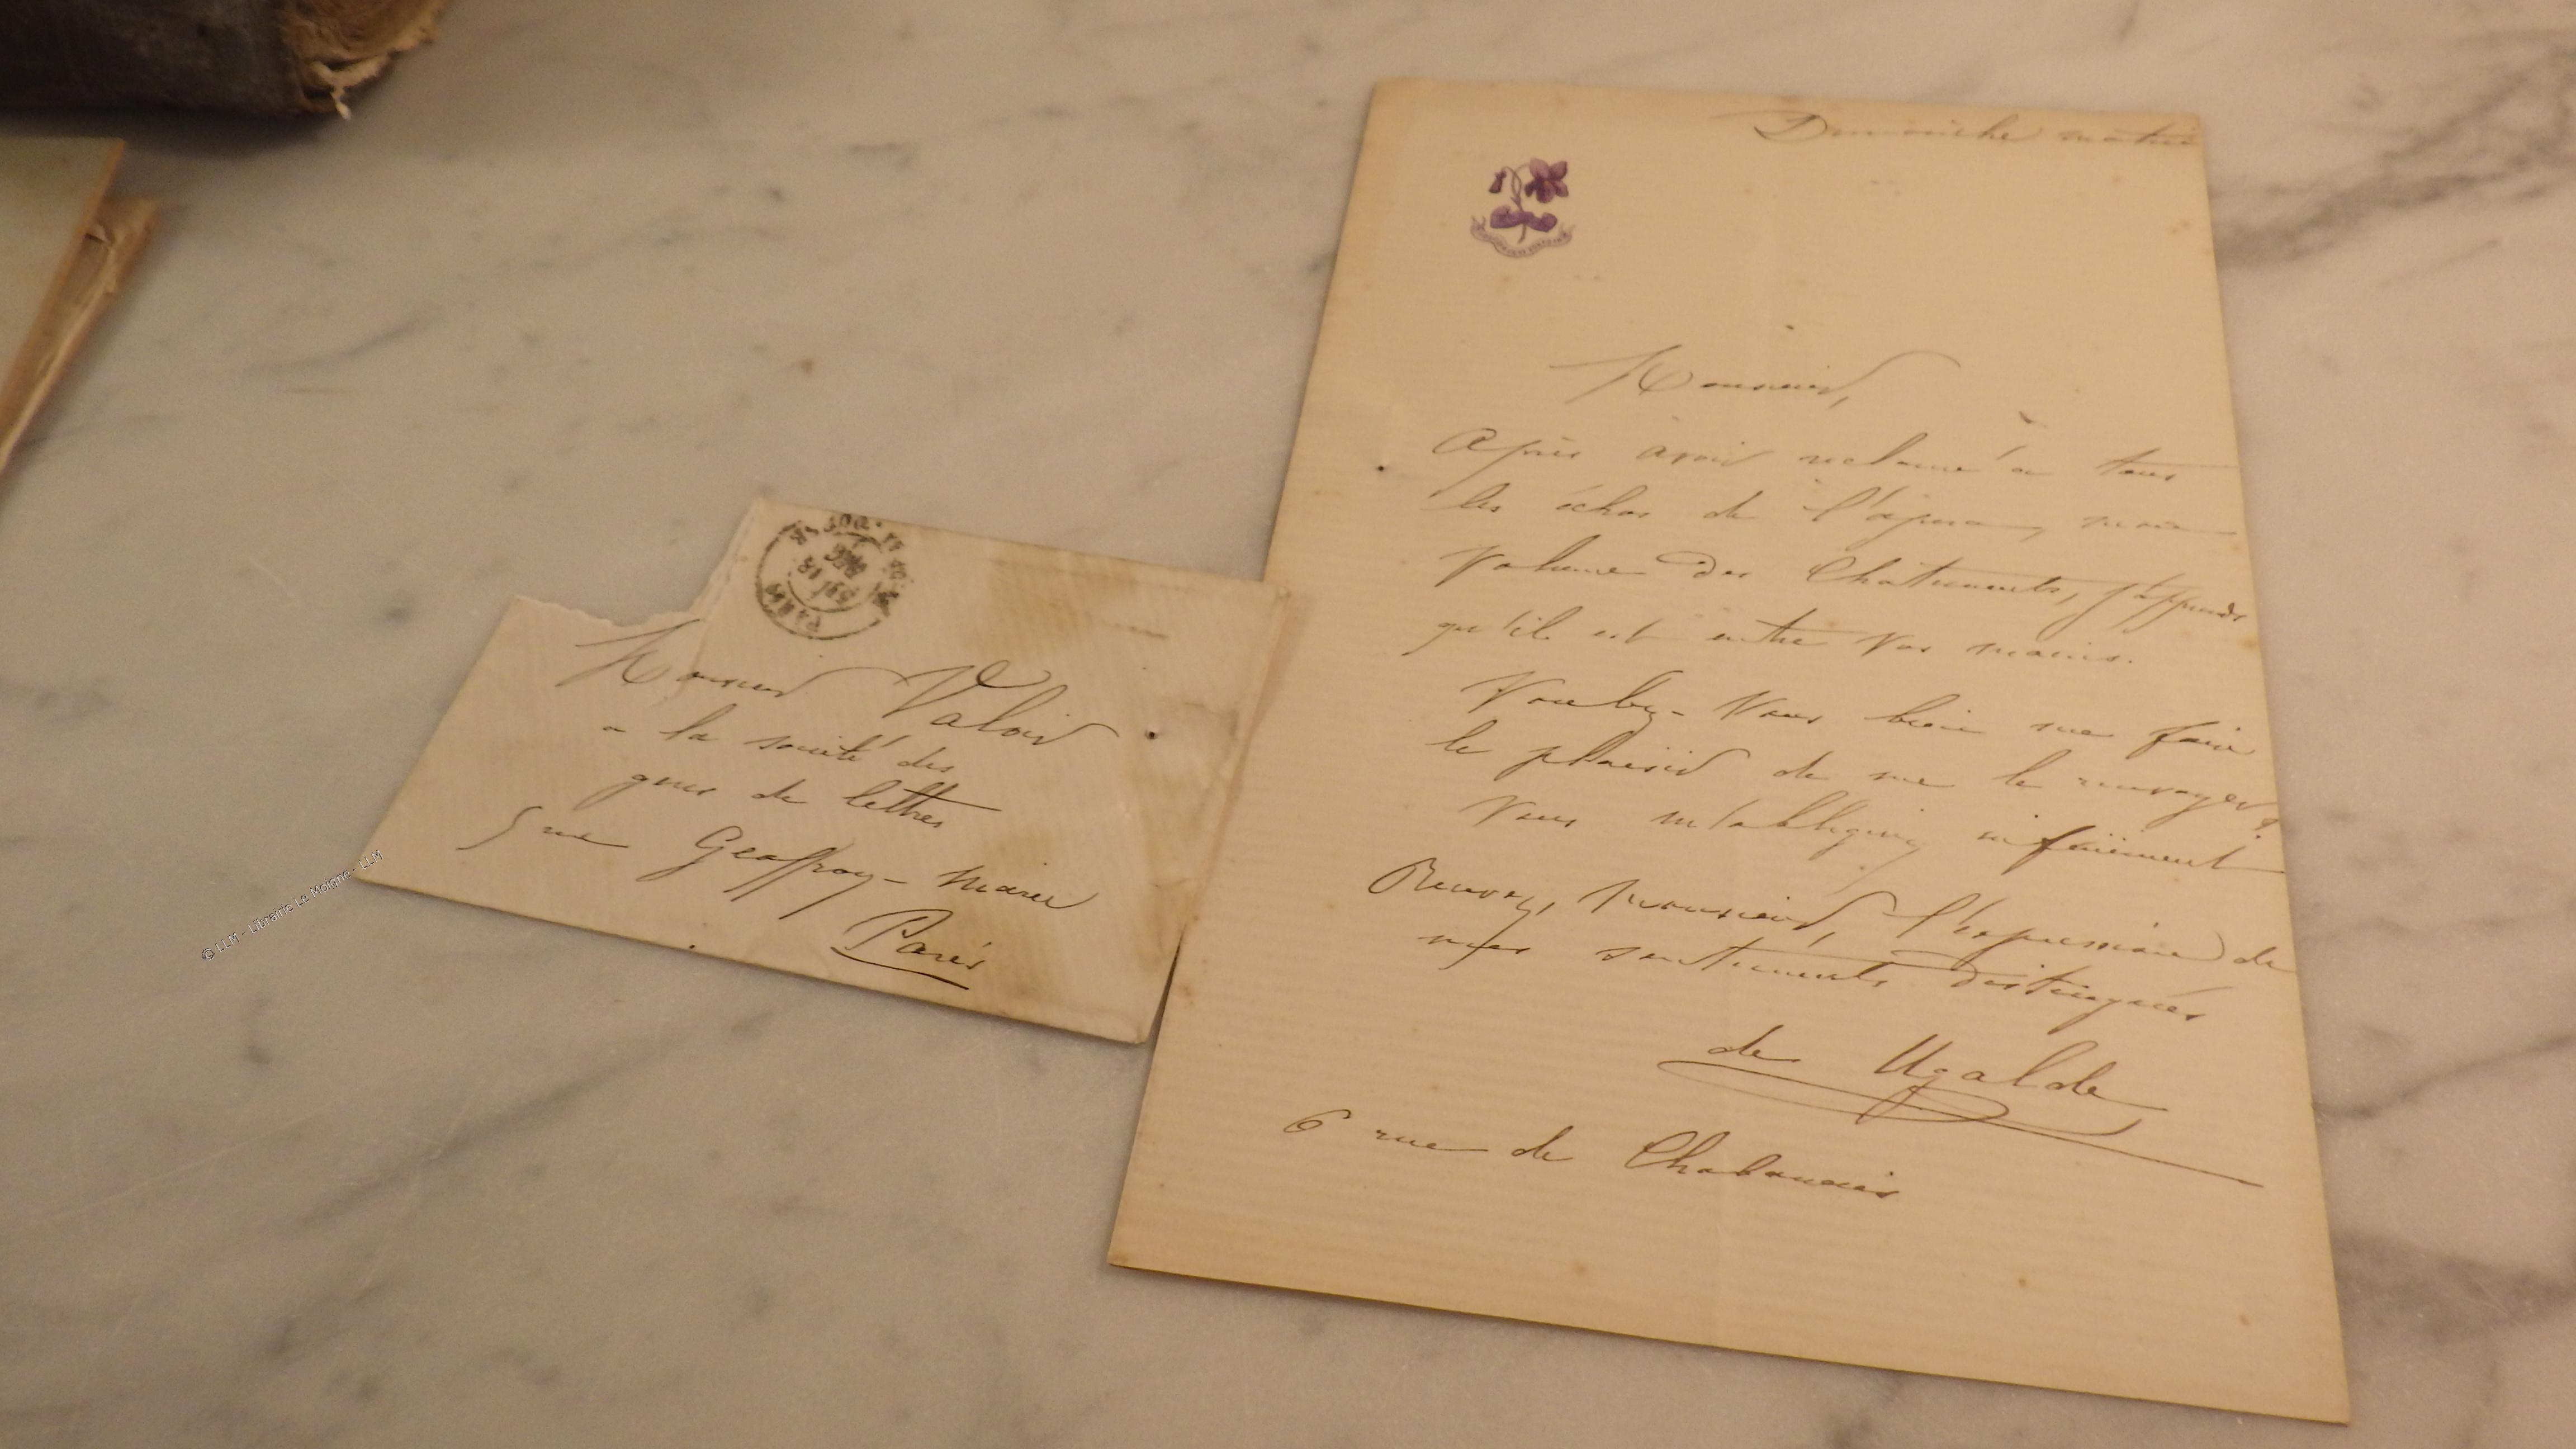 Dimanche matin
Monsieur,
Après avoir reclamé à tous
les échos de l'opera, mon
volume des Chatiments, j'apprends
qu'il est entre vos mains.
Voulez-vous bien me faire
le plaisir de me le renvoyer?
Vous m'obligerez infiniment
Recevez, monsieur, l'expression de
mes sentiments distingués
de Ugalde
6 rue de Chabanais
PARIS
DEC
Monsieur Valois
a la société des
gens de lettres
5 rue Geoffroy-Marie
Paris
© LLM - Librairie Le Moigne - LLM